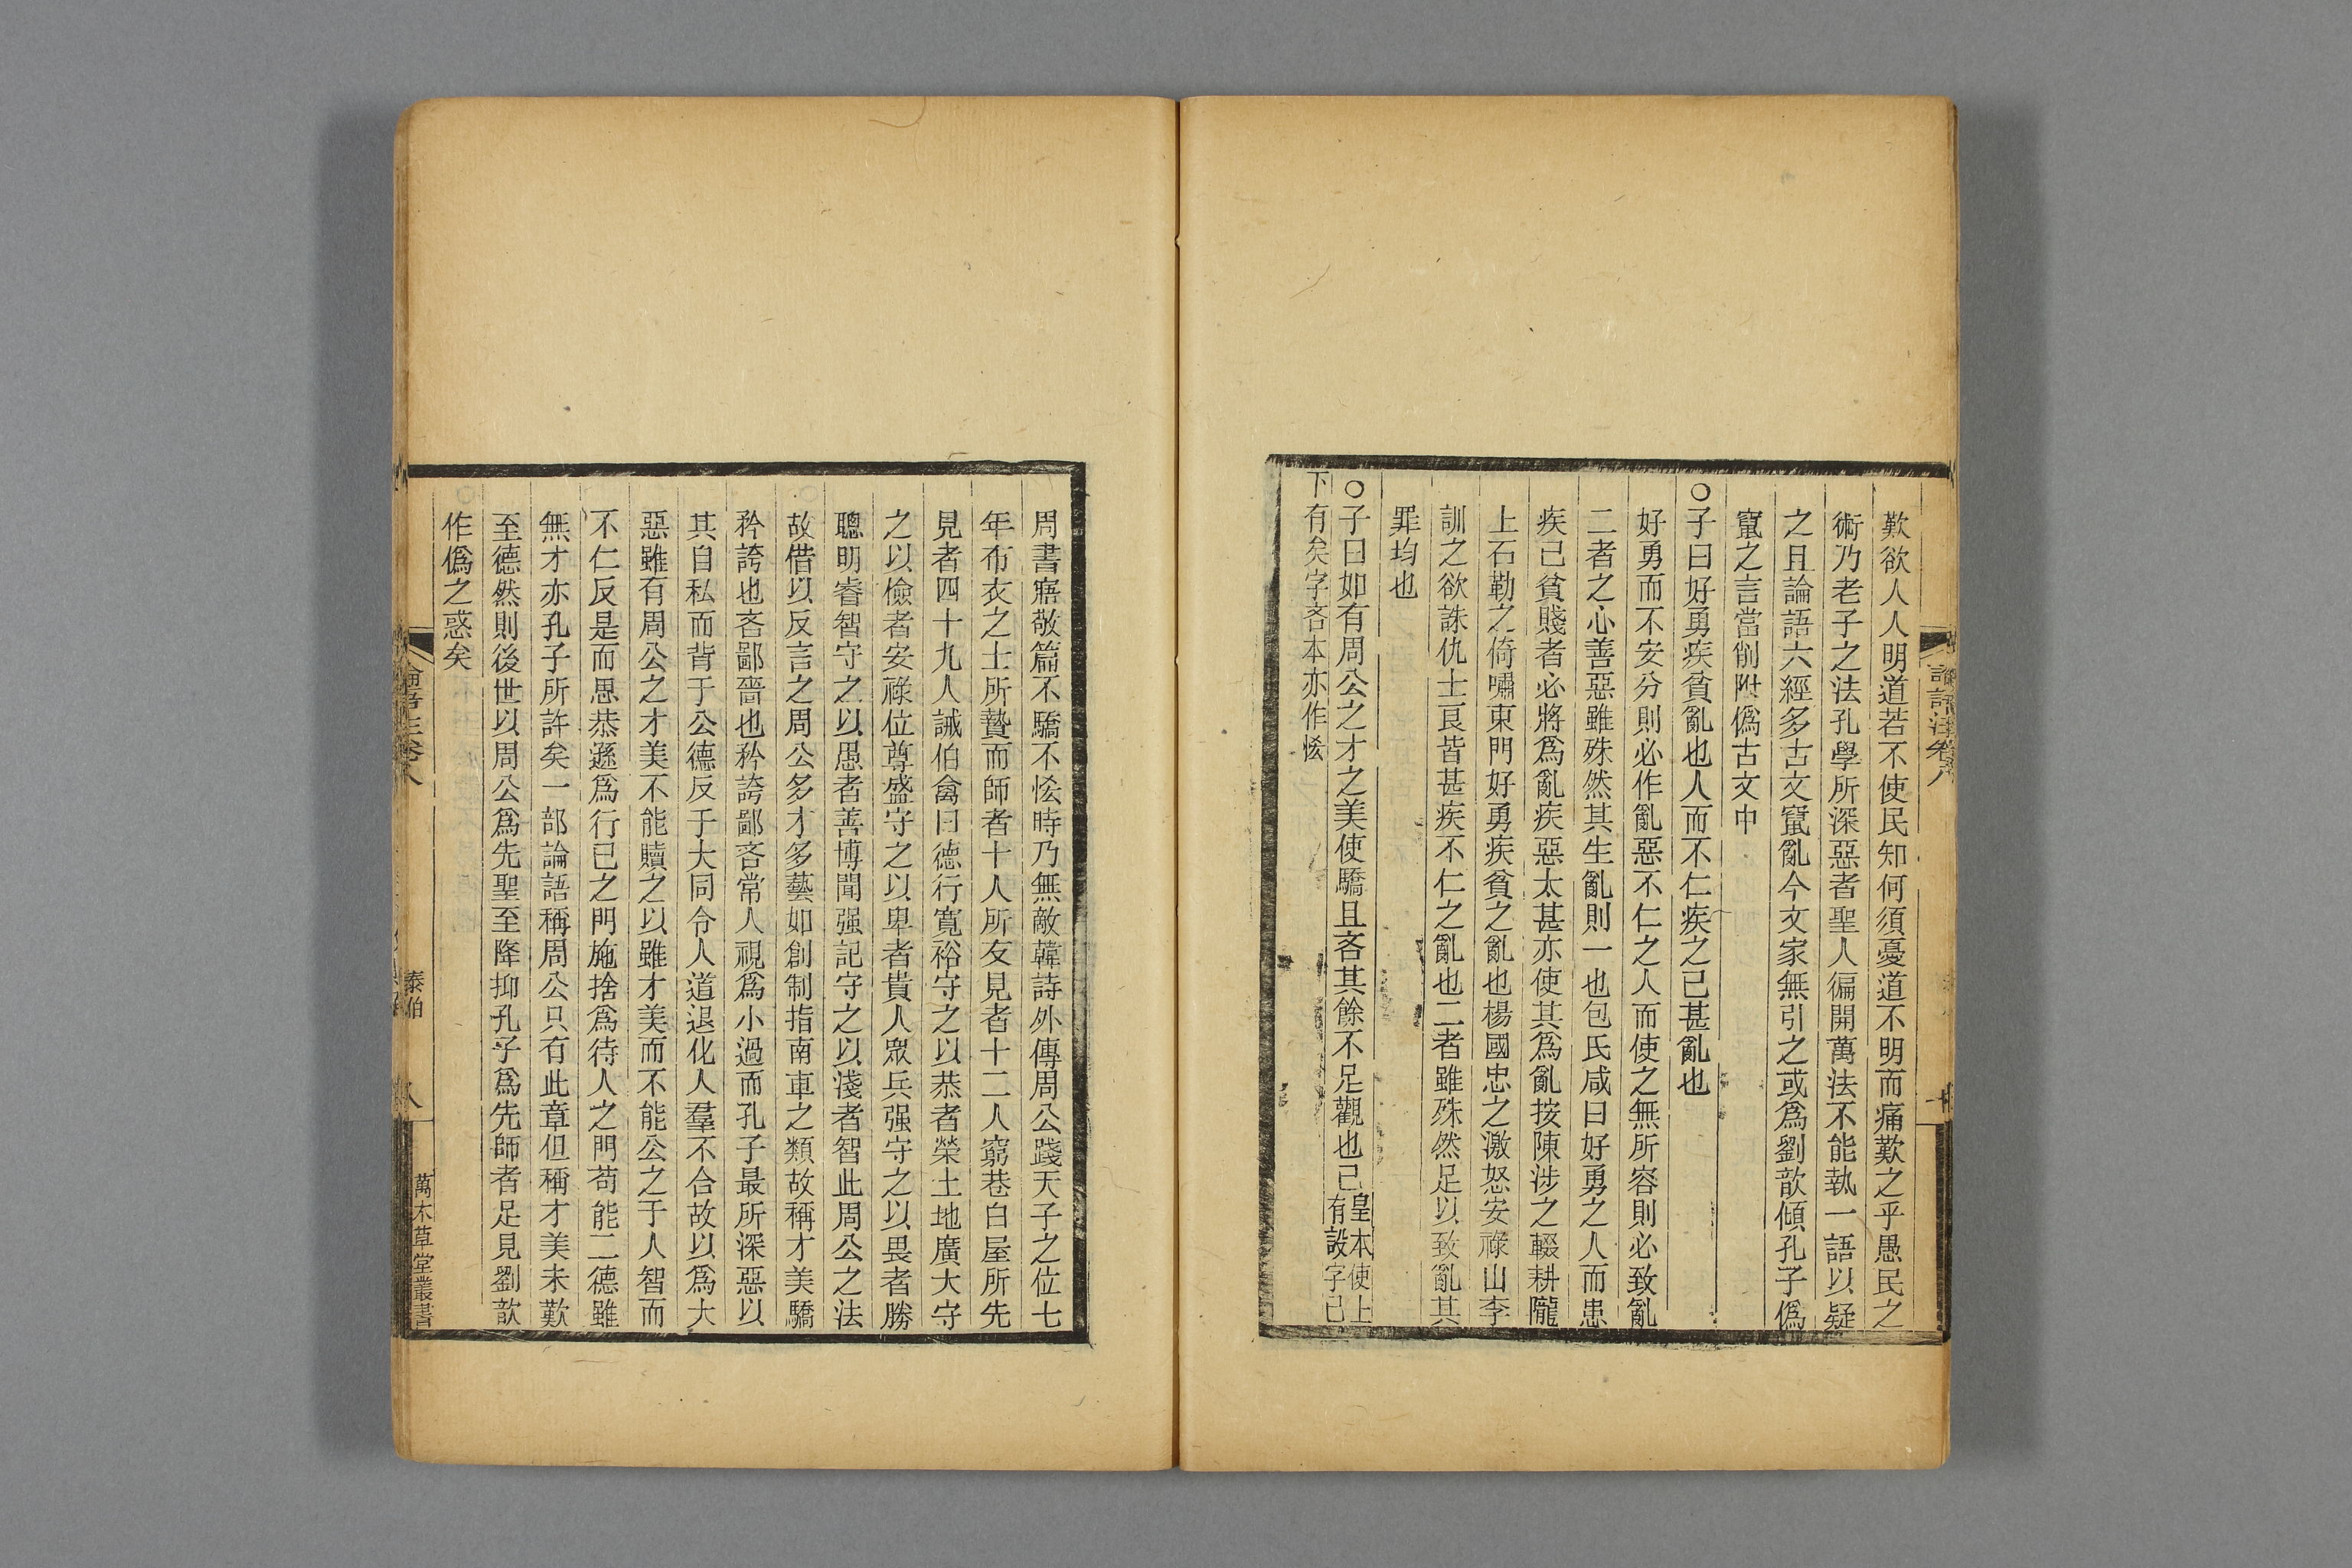 歎欲人人明道若不使民知何須憂道不明而痛歎之乎愚民之
術乃老子之法孔學所深惡者聖人徧開萬法不能執一語以疑
之且論語六經多古文竄亂今文家無引之或爲劉歆傾孔子僞
竄之言當削附僞古文中
○子曰好勇疾貧亂也人而不仁疾之已甚亂也
好勇而不安分則必作亂惡不仁之人而使之無所容則必致亂
二者之心善惡雖殊然其生亂則一也包氏咸曰好勇之人而患
疾己貧賤者必將爲亂疾惡太甚亦使其爲亂按陳涉之輟耕隴
上石勒之倚嘯東門好勇疾貧之亂也楊國忠之激怒安祿山李
訓之欲誅仇士良皆甚疾不仁之亂也二者雖殊然足以致亂其
罪均也
○子曰如有周公之才之美使驕且吝其餘不足觀也已皇本使上有設字已
下有矣字吝本亦作恡
論語注卷八
周書寤敬篇不驕不恡時乃無敵韓詩外傳周公踐天子之位七
年布衣之士所贄而師者十人所友見者十二人窮巷白屋所先
見者四十九人誡伯禽曰德行寬裕守之以恭者榮土地廣大守
之以儉者安祿位尊盛守之以卑者貴人眾兵强守之以畏者勝
聰明睿智守之以愚者善博聞强記守之以淺者智此周公之法
故借以反言之周公多才多藝如創制指南車之類故稱才美驕
矜誇也吝鄙嗇也矜誇鄙吝常人視爲小過而孔子最所深惡以
其自私而背于公德反于大同令人道退化人羣不合故以爲大
惡雖有周公之才美不能贖之以雖才美而不能公之于人智而
不仁反是而思恭遜爲行己之門施捨爲待人之門苟能二德雖
無才亦孔子所許矣一部論語稱周公只有此章但稱才美未歎
至德然則後世以周公爲先聖至降抑孔子爲先師者足見劉歆
作僞之惑矣
論語注卷八
泰伯
八
萬木草堂叢書